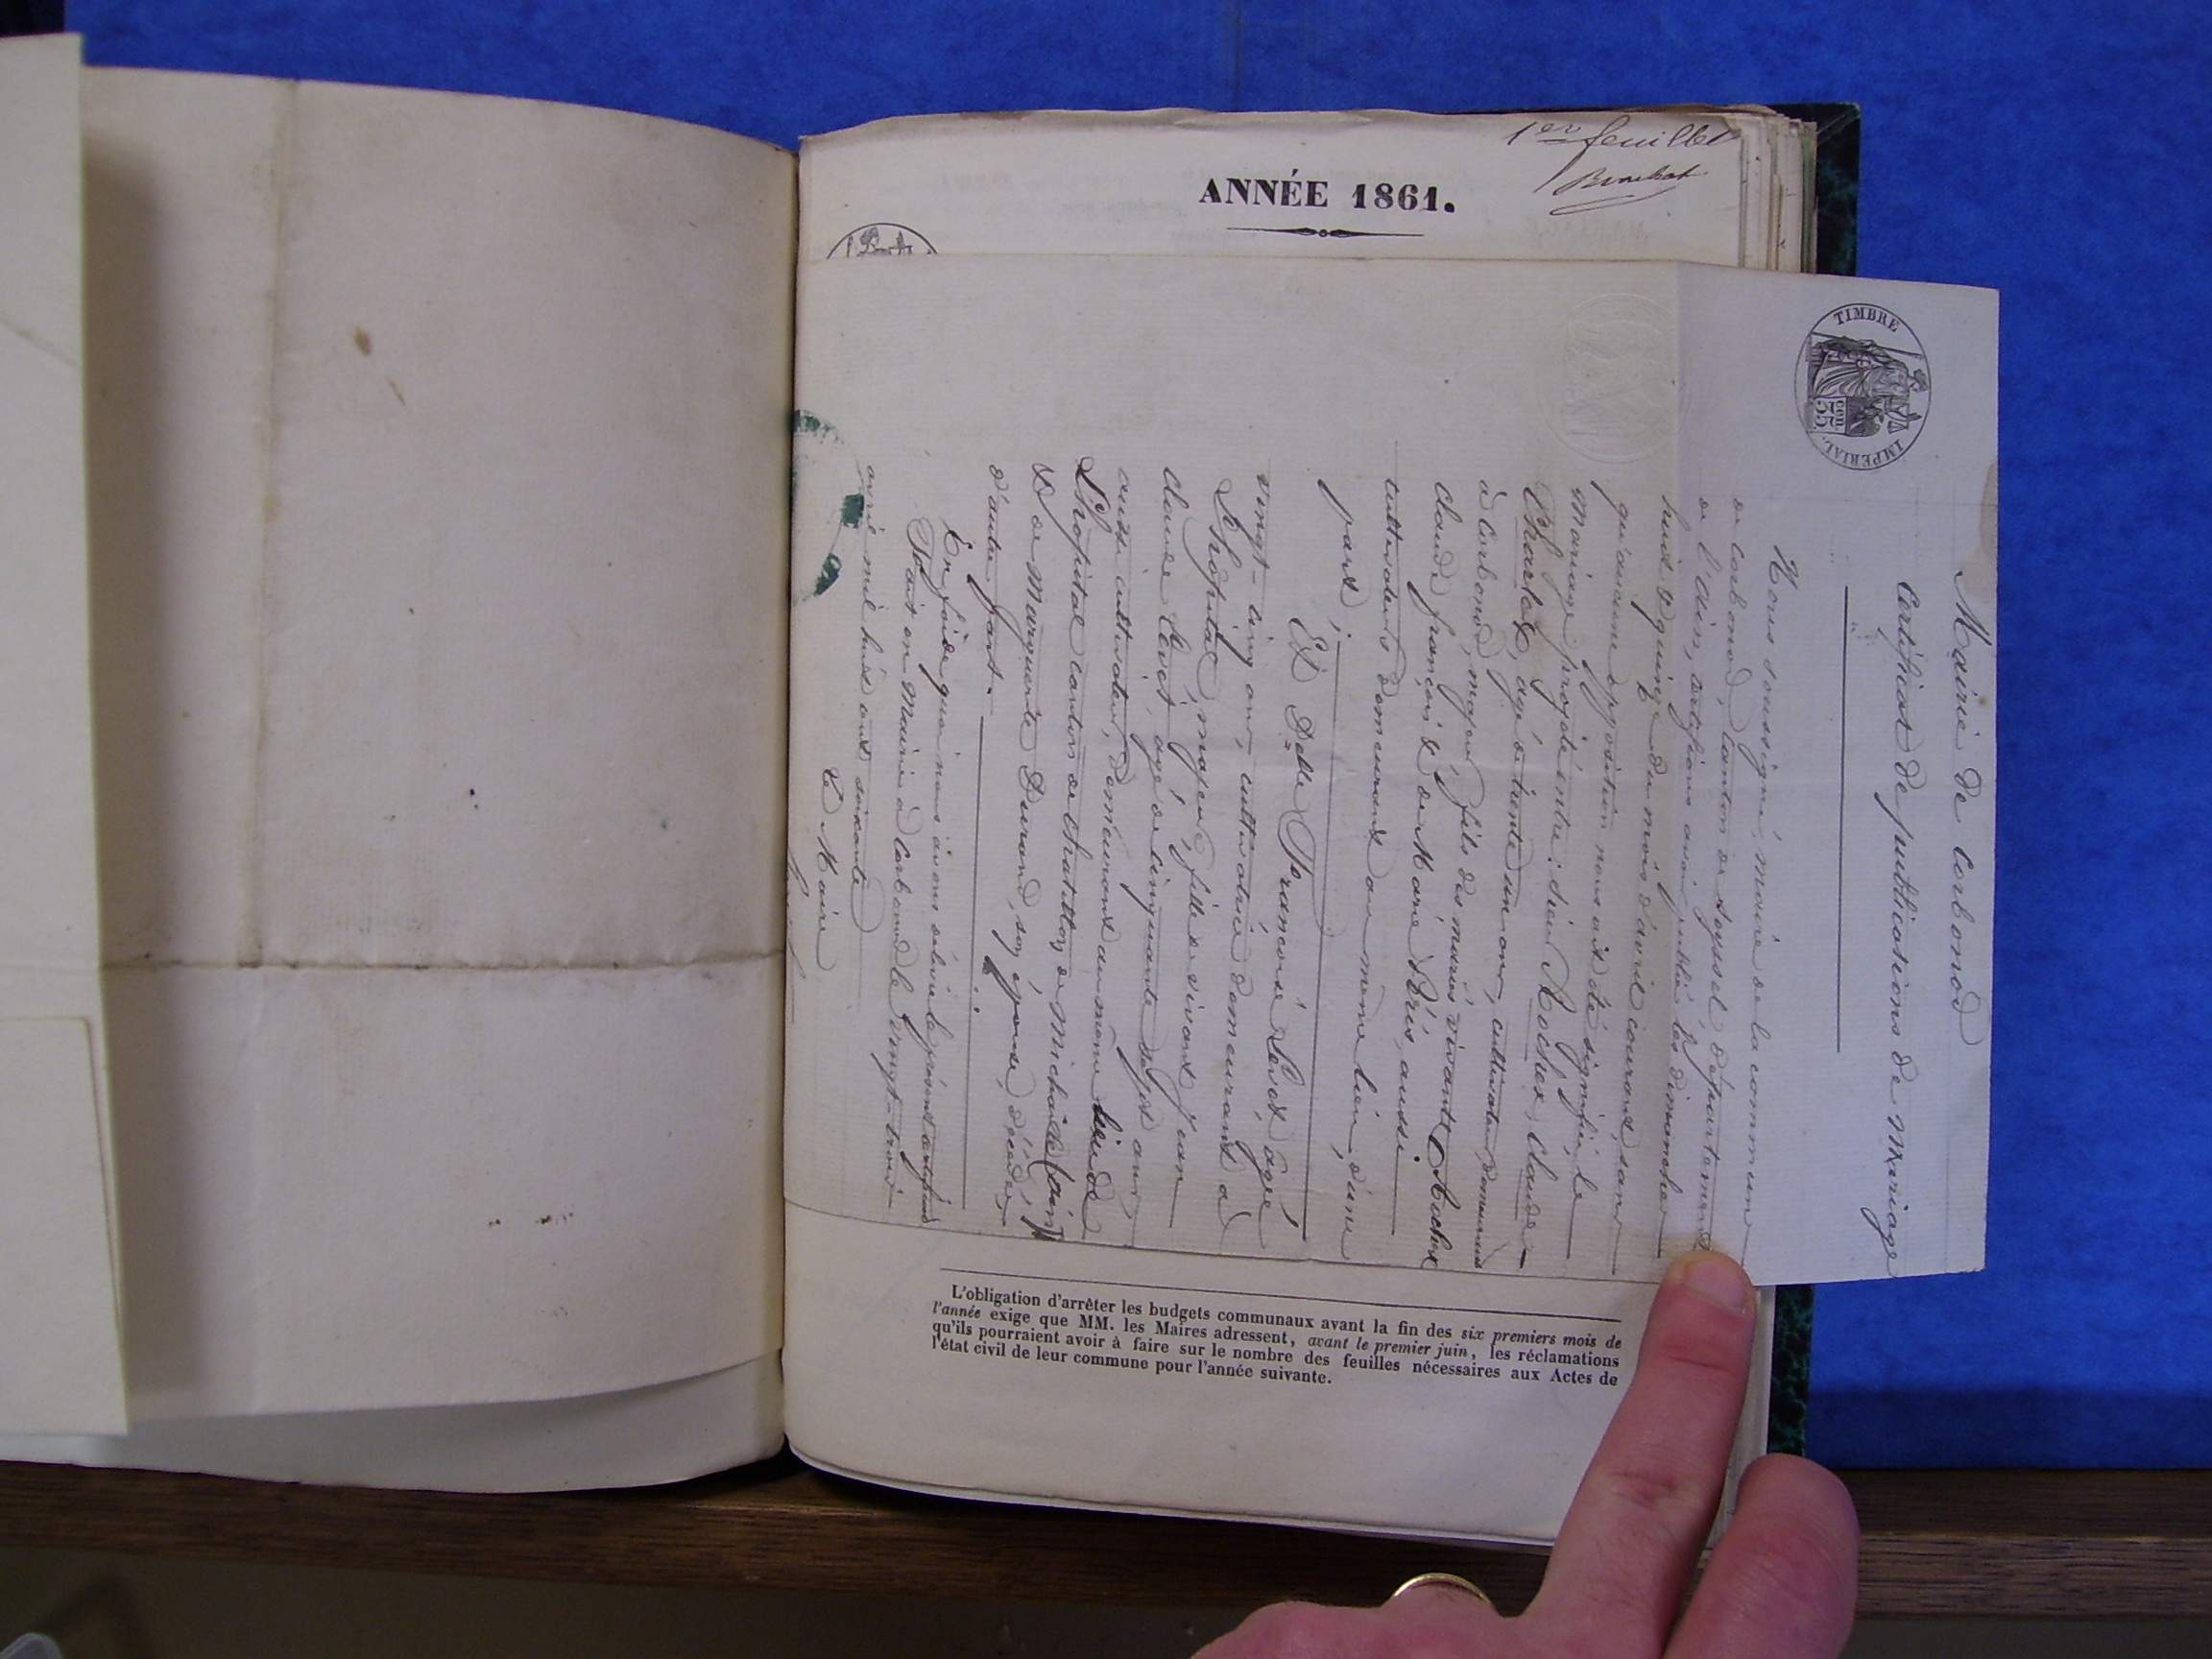 1er feuillet
ANNÉE 1861.
TIMBRE
IMPERIAL
35
cen
Mairie de Corbonod
Certificat de publications de mariage
Nous soussigné, maire de la commune
de Corbonod, canton de Seyssel, département
de l'ain, certifions avoir publié, les dimanches
huit & quinze du mois d'avril courant, sans
qu'aucune opposition nous ait été signifiée, le
mariage projeté entre: sieur Rochex, Claude
Charles, agé de trente un ans, cultivateur, demeurant
à Corbonod, majeur, fils des mariés vivants Rochex
Claude françois & de Marie aussi
cultivateurs demeurant au même lieu, d'une
part;
Et Delle Françoise Levet, agée
vingt-cinq ans, cultivatrice demeurant à
Lhopital, majeure, fille de vivant Jean
Claude Levet, agé de cinquante sept ans
aussi cultivateur, demeurant au même lieu de
Lhopital canton de Chatillon de Michaille (ain)
& de Marguerite Durand, son épouse, décédée,
d'autre part.
En foi de quoi nous avons délivré le présent certificat
Fait en Mairie à Corbonod le vingt-trois
avril mil huit cent soixante
Le Maire
L'obligation d'arrêter les budgets communaux avant la fin des six premiers mois de
l'année exige que MM. les Maires adressent, avant le premier juin, les réclamations
qu'ils pourraient avoir à faire sur le nombre des feuilles nécessaires aux Actes de
l'état civil de leur commune pour l'année suivante.